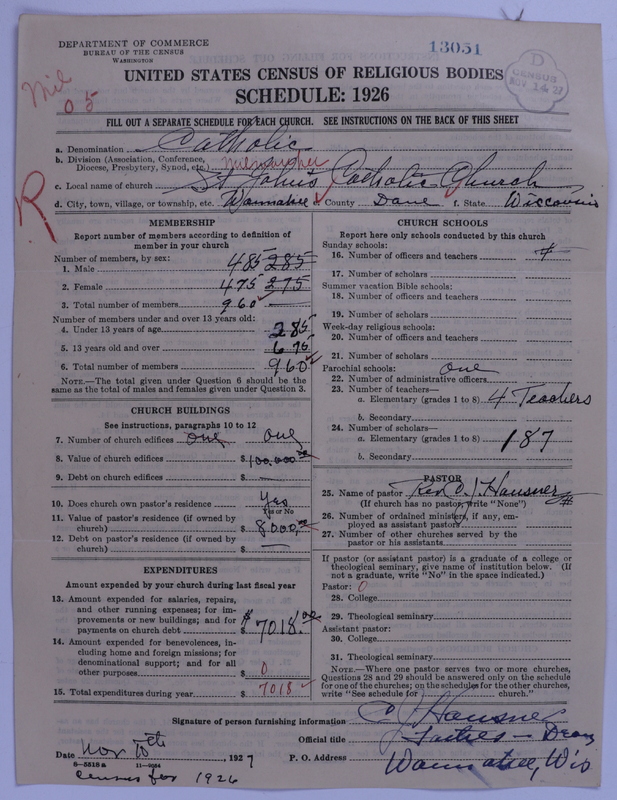 DEPARTMENT OF COMMERCE
BUREAU OF THE CENSUS
WASHINGTON
13051
D
CENSUS
NOV 14 27
Mil
05
R
UNITED STATES CENSUS OF RELIGIOUS BODIES
SCHEDULE: 1926
FILL OUT A SEPARATE SCHEDULE FOR EACH CHURCH. SEE INSTRUCTIONS ON THE BACK OF THIS SHEET
a. Denomination Catholic
b. Division (Association, Conference, Diocese, Presbytery, Synod, etc.) Milwaukee
c. Local name of church St John's Catholic Church
d. City, town, village, or township, etc. Waunakee e. County Dane f. State Wisconsin
MEMBERSHIP
Report number of members according to definition of
member in your church
Number of members, by sex:
1. Male 485 285
2. Female 475 275
3. Total number of members 960
Number of members under and over 13 years old:
4. Under 13 years of age 285
5. 13 years old and over 675
6. Total number of members 960
NOTE.—The total given under Question 6 should be
same as the total of males and females given under Question 3.
CHURCH BUILDINGS
See instructions, paragraphs 10 to 12
7. Number of church edifices one one
8. Value of church edifices $ 100,000.00
9. Debt on church edifices $ —
10. Does church own pastor's residence Yes
Yes or No
11. Value of pastor's residence (if owned by
church) $ 8000,
12. Debt on pastor's residence (if owned by
church) $ —
EXPENDITURES
Amount expended by your church during last fiscal year
13. Amount expended for salaries, repairs,
and other running expenses; for im-
provements or new buildings; and for
payments on church debt $ 7018.00
14. Amount expended for benevolences, in-
cluding home and foreign missions; for
denominational support; and for all
other purposes $ 0
15. Total expenditures during year $ 7018
CHURCH SCHOOLS
Report here only schools conducted by this church
Sunday schools:
16. Number of officers and teachers
17. Number of scholars
Summer vacation Bible schools:
18. Number of officers and teachers
19. Number of scholars
Week-day religious schools:
20. Number of officers and teachers
21. Number of scholars
Parochial schools:
22. Number of administrative officers one
23. Number of teachers—
a. Elementary (grades 1 to 8) 4 Teachers
b. Secondary
24. Number of scholars—
a. Elementary (grades 1 to 8) 187
b. Secondary
PASTOR
25. Name of pastor Rev. O. J. Hausner
(If church has no pastor, write "None")
26. Number of ordained ministers, if any, em-
ployed as assistant pastors
27. Number of other churches served by the
pastor or his assistants
If pastor (or assistant pastor) is a graduate of a college or
theological seminary, give name of institution below. (If
not a graduate, write "No" in the space indicated.)
Pastor: 0
28. College
29. Theological seminary
Assistant pastor:
30. College
31. Theological seminary
NOTE.—Where one pastor serves two or more churches,
Questions 28 and 29 should be answered only on the schedule
for one of the churches; on the schedules for the other churches,
write "See schedule for church."
Signature of person furnishing information O J Hausner
Official title Dean
Date Nov 10th 1927 P. O. Address Waunakee, Wis
8—5518a 11—9024
Census for 1926